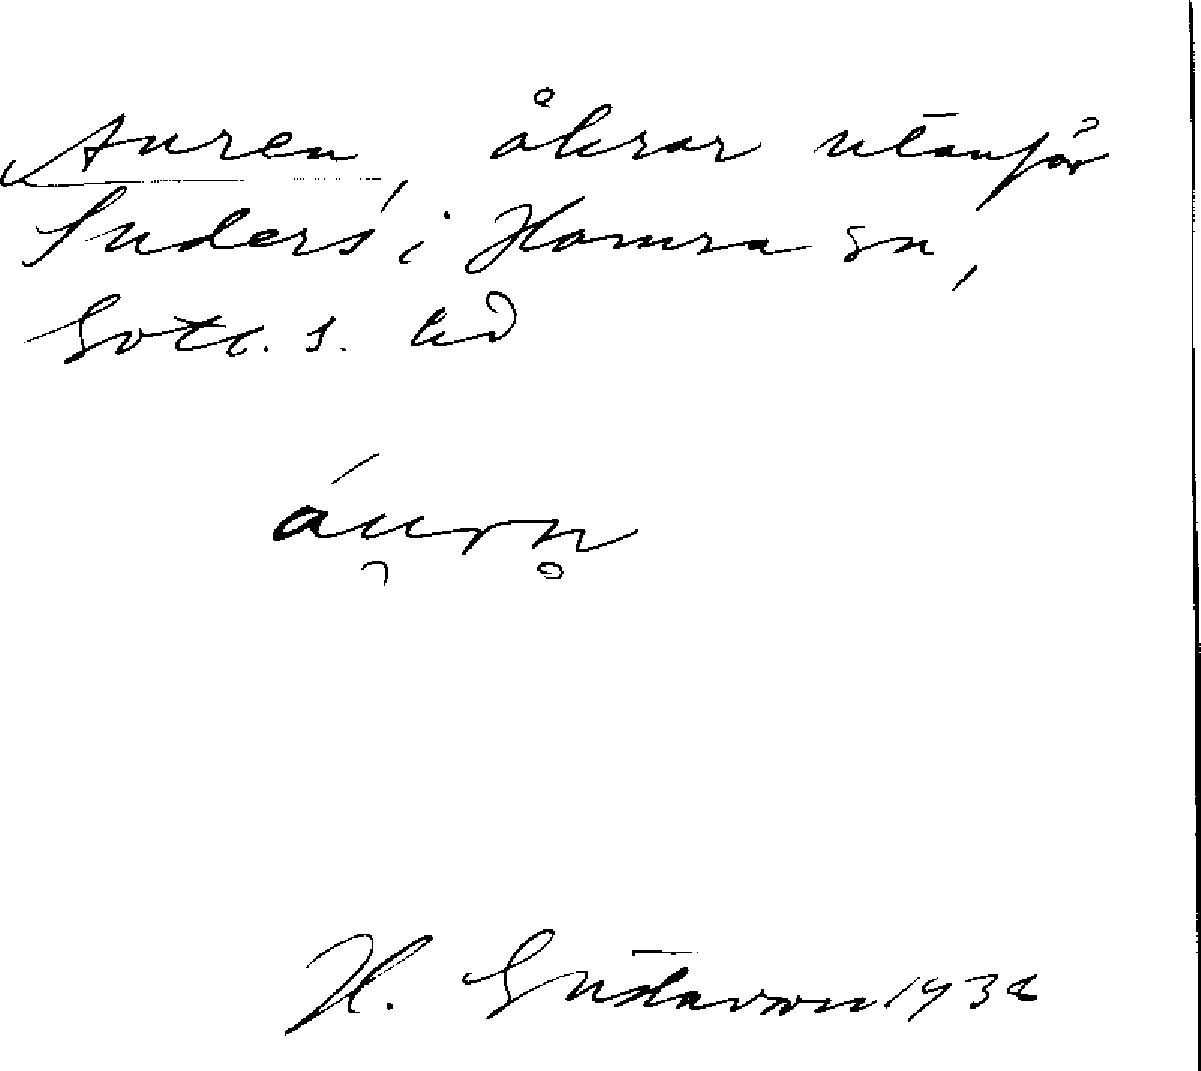 Auren, åkrar utanför
Suders' i Hamra sn,
Gotl. s. hd
áu̯rn̥
H. Gustavson 1932